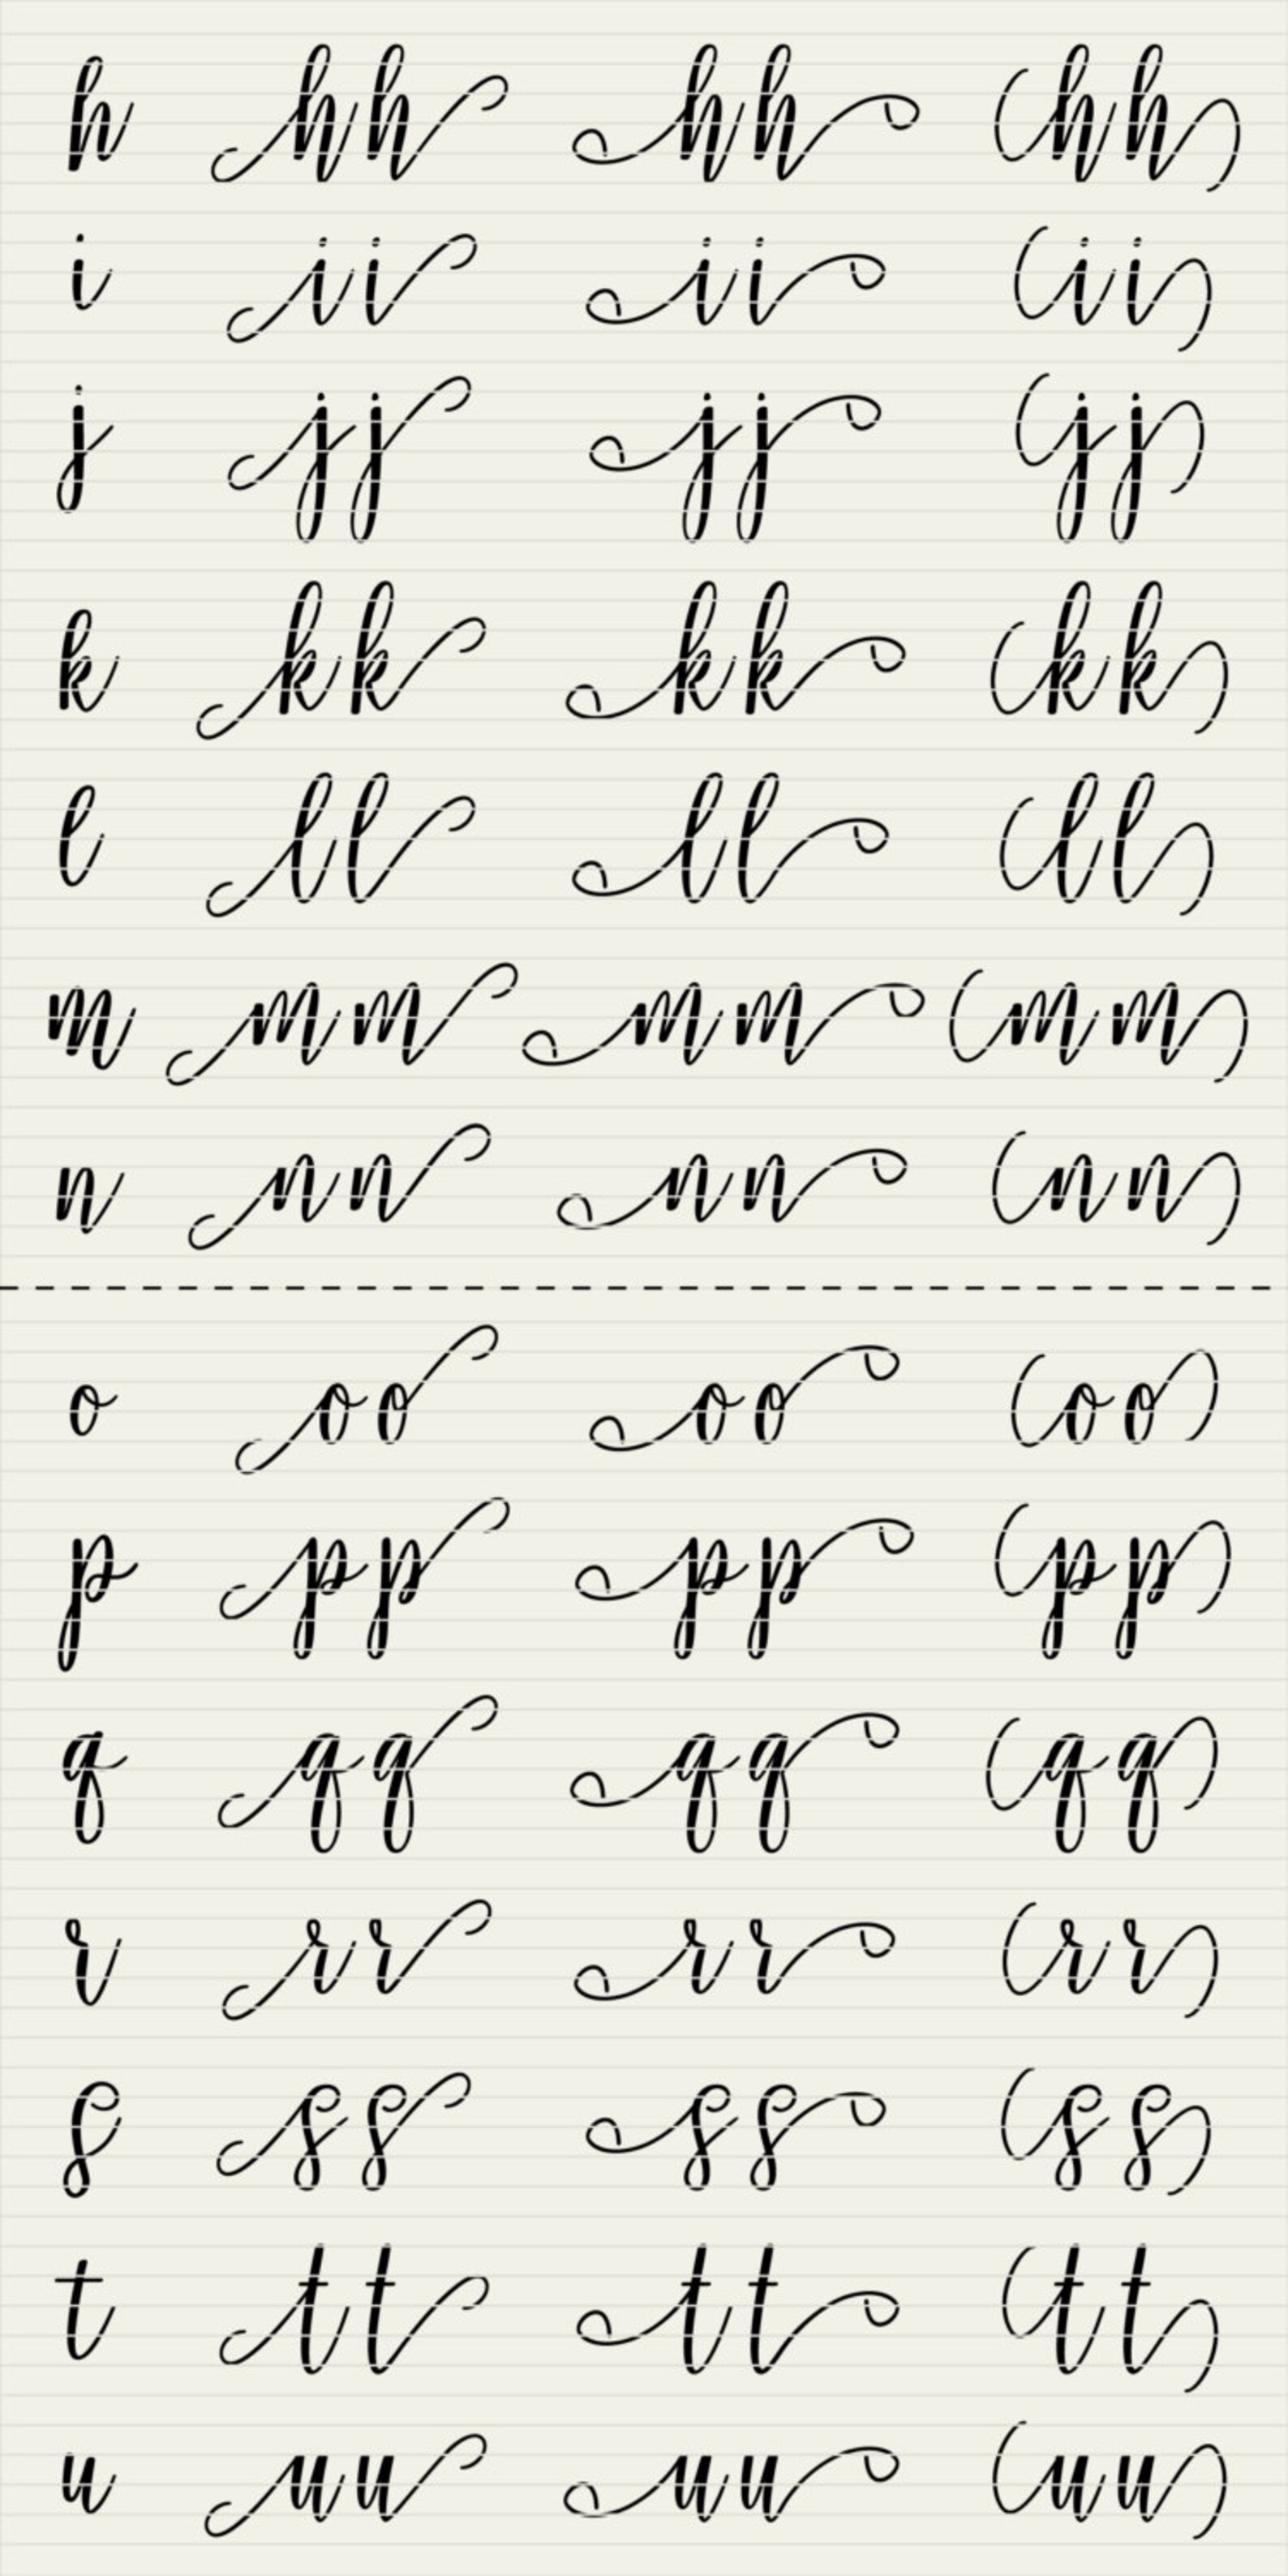 h hh hh hh
i ii ii ii
j jj jj jj
k kk kk kk
l ll ll ll
m mm mm mm
n nn nn nn
o oo oo oo
p pp pp pp
q qq qq qq
r rr rr rr
s ss ss ss
t tt tt tt
u uu uu uu